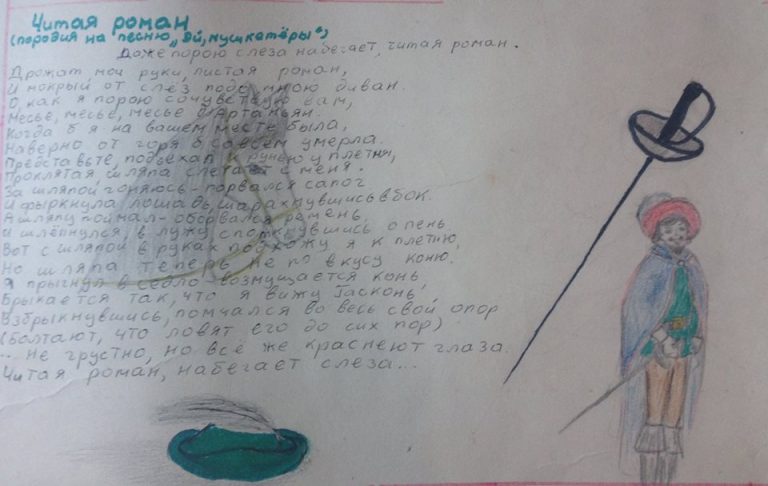 Читая роман
(пародия на песню „Эй, мушкетёры")
Даже порою слеза набегает, читая роман.
Дрожат мои руки, листая роман,
И мокрый от слёз подо мною диван.
О, как я порою сочувствую вам,
Месье, месье, месье д'Артаньян.
Когда б я на вашем месте была,
Наверно от горя б совсем умерла.
Представьте, подъехал к ручью у плетня,
Проклятая шляпа слетает с меня.
За шляпой гоняюсь - порвался сапог
И фыркнула лошадь, шарахнувшись вбок.
А шляпу поймал - оборвался ремень
И шлёпнулся в лужу споткнувшись о пень.
Вот с шляпой в руках подхожу я к плетню,
Но шляпа теперь не по вкусу коню.
Я прыгнул в седло - возмущается конь
Брыкается так, что я вижу Гасконь,
Взбрыкнувшись, помчался во весь свой опор
(Болтают, что ловят его до сих пор)
... Не грустно, но всё же краснеют глаза.
Читая роман, набегает слеза...